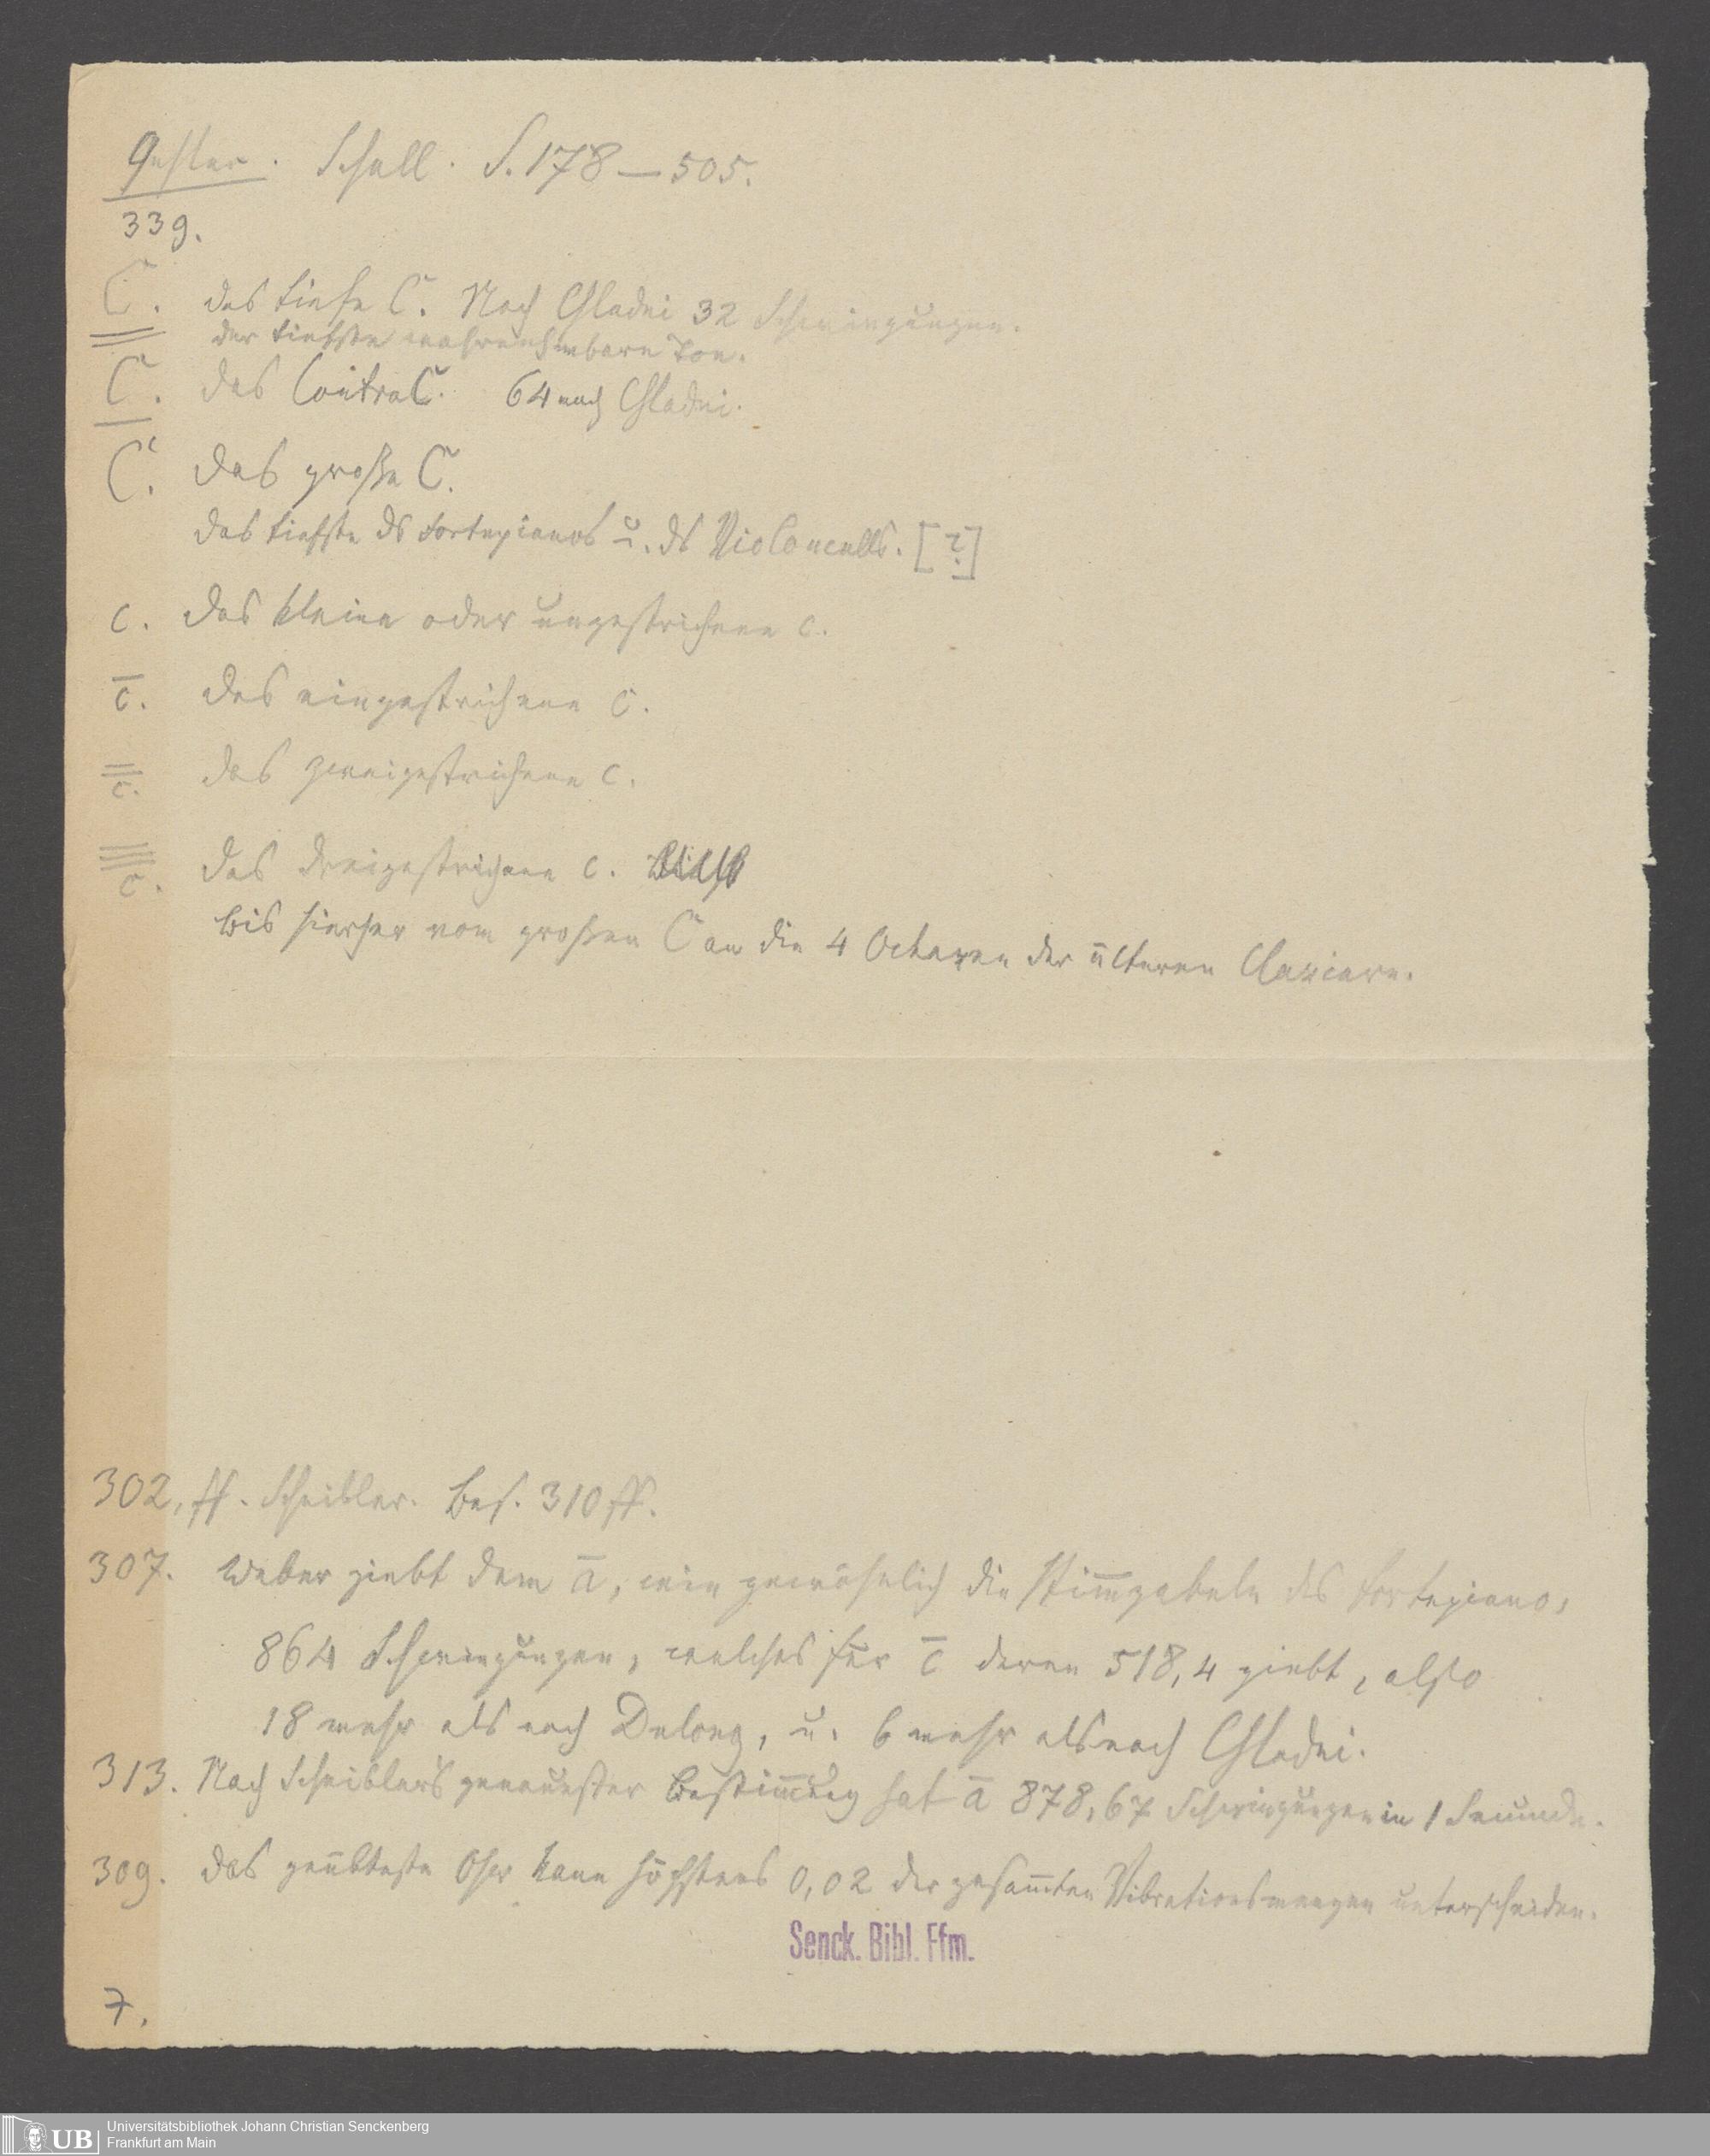 Gehler. Schall. S. 178 — 505.
339.
C. das tiefe C. Nach Chladni 32 Schwingungen.
der tiefste wahrnehmbare Ton.
C. das Contra C. 64 nach Chladni.
C. das große C.
das tiefste ds Fortepianos u. ds Violoncells. [?]
c. das kleine oder ungestrichene c.
c̅. das eingestrichene c.
c̿. das zweigestrichene c.
c. das dreigestrichene c.
bis hierher vom großen C an die 4 Octaven der älteren Claviere.
302, ff. Scheibler. Bes. 310 ff.
307. Weber giebt dem a̅, wie gewöhnlich die Stim̅gabeln des Fortepiano,
864 Schwingungen, welches für c̅ deren 518,4 giebt, also
18 mehr als nach Dulong, u. 6 mehr als nach Chladni.
313. Nach Scheibler's genauester Bestim̅ung hat a̅ 878,67 Schwingungen in 1 Secunde.
309. Das geübteste Ohr kann höchstens 0,02 der gesam̅ten Vibrationsmengen unterscheiden.
Senck. Bibl. Ffm.
7.
UB
Universitätsbibliothek Johann Christian Senckenberg
Frankfurt am Main